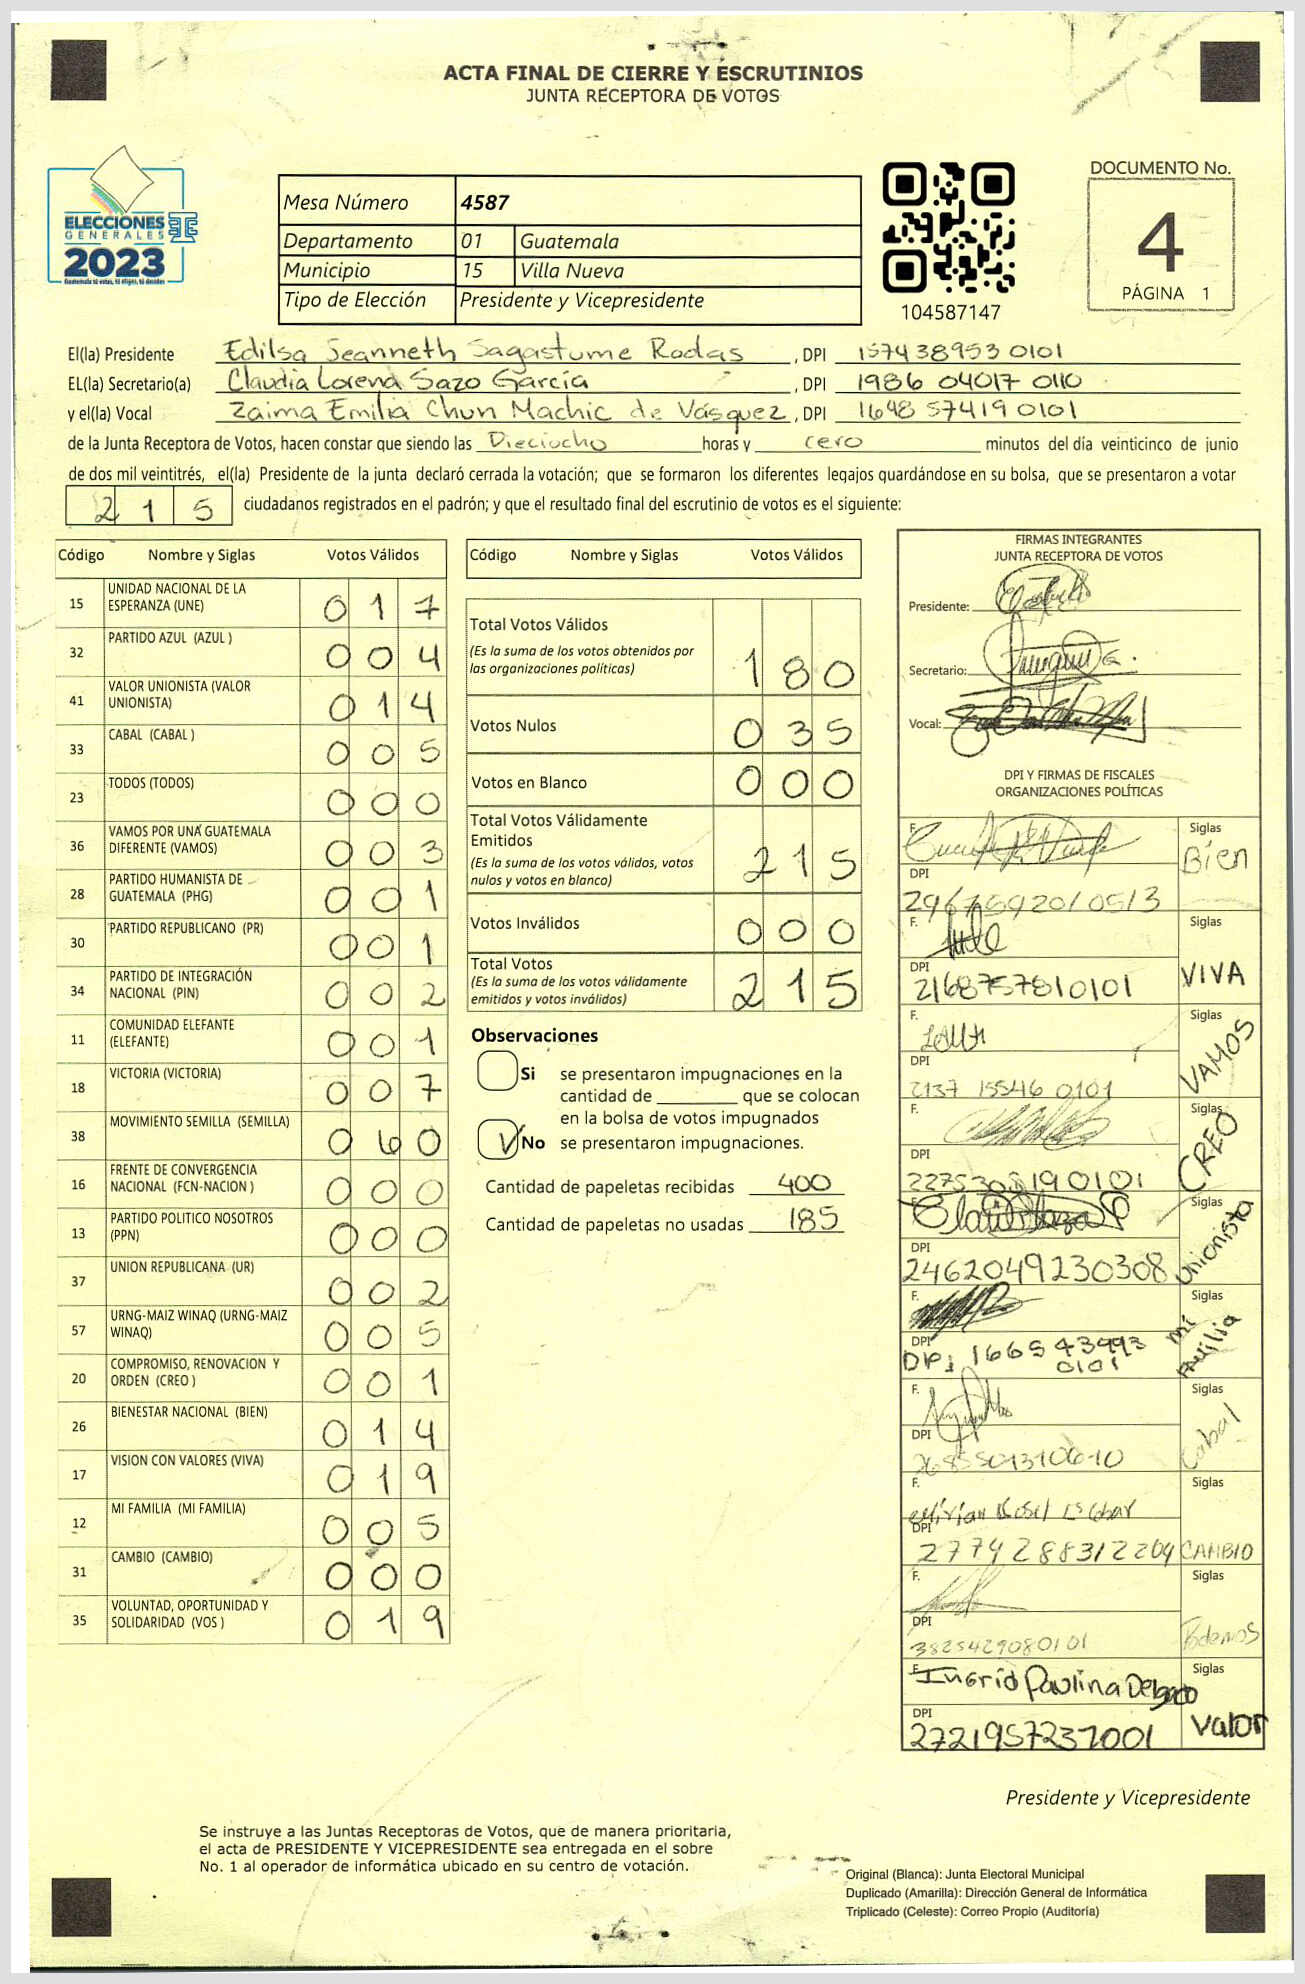 ACTA FINAL DE CIERRE Y ESCRUTINIOS
JUNTA RECEPTORA DE VOTOS
ELECCIONES
GENERALES
2023
Guatemala tú votas, tú eliges, tú decides
Mesa Número 4587
Departamento 01 Guatemala
Municipio 15 Villa Nueva
Tipo de Elección Presidente y Vicepresidente
104587147
DOCUMENTO No.
4
PÁGINA 1
El(la) Presidente Edilsa Jeanneth Sagastume Rodas, DPI 157438953 0101
EL(la) Secretario(a) Claudia Lorena Sazo García, DPI 1986 04017 0110
y el(la) Vocal Zaima Emilia Chun Machic de Vásquez, DPI 1648 57419 0101
de la Junta Receptora de Votos, hacen constar que siendo las Dieciocho horas y cero minutos del día veinticinco de junio
de dos mil veintitrés, el(la) Presidente de la junta declaró cerrada la votación; que se formaron los diferentes legajos quardándose en su bolsa, que se presentaron a votar
215 ciudadanos registrados en el padrón; y que el resultado final del escrutinio de votos es el siguiente:
Código Nombre y Siglas Votos Válidos
15 UNIDAD NACIONAL DE LA ESPERANZA (UNE) 017
32 PARTIDO AZUL (AZUL ) 004
41 VALOR UNIONISTA (VALOR UNIONISTA) 014
33 CABAL (CABAL ) 005
23 TODOS (TODOS) 000
36 VAMOS POR UNA GUATEMALA DIFERENTE (VAMOS) 003
28 PARTIDO HUMANISTA DE GUATEMALA (PHG) 001
30 PARTIDO REPUBLICANO (PR) 001
34 PARTIDO DE INTEGRACIÓN NACIONAL (PIN) 002
11 COMUNIDAD ELEFANTE (ELEFANTE) 001
18 VICTORIA (VICTORIA) 007
38 MOVIMIENTO SEMILLA (SEMILLA) 060
16 FRENTE DE CONVERGENCIA NACIONAL (FCN-NACION ) 000
13 PARTIDO POLITICO NOSOTROS (PPN) 000
37 UNION REPUBLICANA (UR) 002
57 URNG-MAIZ WINAQ (URNG-MAIZ WINAQ) 005
20 COMPROMISO, RENOVACION Y ORDEN (CREO ) 001
26 BIENESTAR NACIONAL (BIEN) 014
17 VISION CON VALORES (VIVA) 019
12 MI FAMILIA (MI FAMILIA) 005
31 CAMBIO (CAMBIO) 000
35 VOLUNTAD, OPORTUNIDAD Y SOLIDARIDAD (VOS ) 019
Código Nombre y Siglas Votos Válidos
Total Votos Válidos
(Es la suma de los votos obtenidos por
las organizaciones políticas) 180
Votos Nulos 035
Votos en Blanco 000
Total Votos Válidamente
Emitidos
(Es la suma de los votos válidos, votos
nulos y votos en blanco) 215
Votos Inválidos 000
Total Votos
(Es la suma de los votos válidamente
emitidos y votos inválidos) 215
Observaciones
Si se presentaron impugnaciones en la
cantidad de ________ que se colocan
en la bolsa de votos impugnados
No se presentaron impugnaciones.
Cantidad de papeletas recibidas 400
Cantidad de papeletas no usadas 185
FIRMAS INTEGRANTES
JUNTA RECEPTORA DE VOTOS
Presidente:
Secretario:
Vocal:
DPI Y FIRMAS DE FISCALES
ORGANIZACIONES POLÍTICAS
F. Siglas
Bien
DPI
F. Siglas
DPI VIVA
2168757810101
F. Siglas
DPI VAMOS
2137 15546 0101
F. Siglas
DPI CREO
F. Siglas
DPI Unionista
2462049230308
F. Siglas
mi Familia
DPI
DPI: 166543993
0101
F. Siglas
DPI Cabal
F. Siglas
DPI
2774288312204 CAMBIO
F. Siglas
DPI
3825429080101 Podemos
F. Siglas
Ingrid Paulina Delgado
DPI Valor
2721957237001
Presidente y Vicepresidente
Se instruye a las Juntas Receptoras de Votos, que de manera prioritaria,
el acta de PRESIDENTE Y VICEPRESIDENTE sea entregada en el sobre
No. 1 al operador de informática ubicado en su centro de votación.
Original (Blanca): Junta Electoral Municipal
Duplicado (Amarilla): Dirección General de Informática
Triplicado (Celeste): Correo Propio (Auditoría)